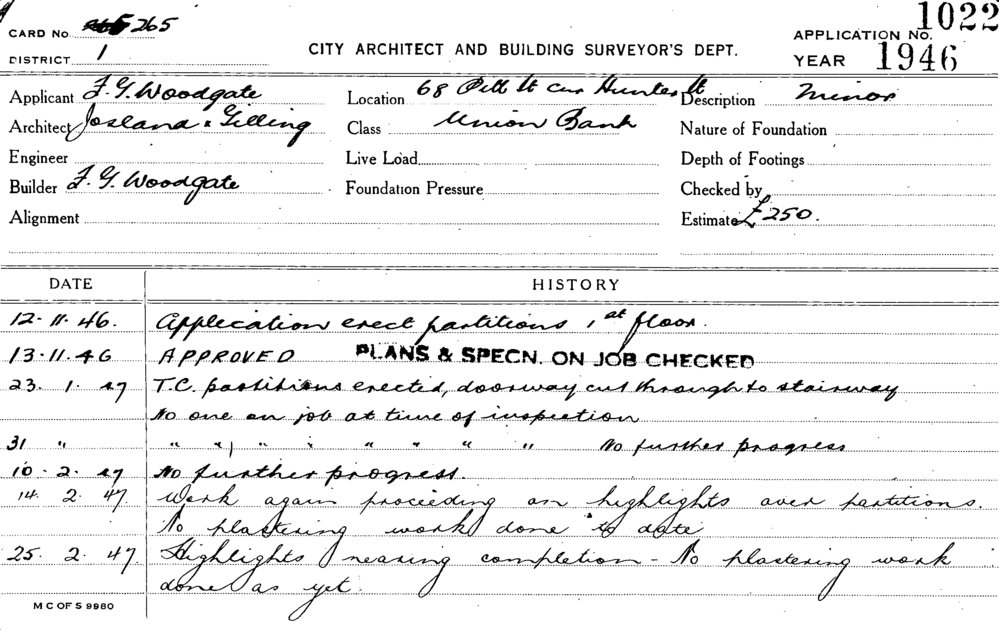 CARD No. 265
APPLICATION No. 1022
DISTRICT 1
CITY ARCHITECT AND BUILDING SURVEYOR'S DEPT.
YEAR 1946
Applicant F. G. Woodgate
Location 68 Pitt St cnr Hunter St
Description Minor
Architect Joseland & Gilling
Class Union Bank
Nature of Foundation
Engineer
Live Load
Depth of Footings
Builder F. G. Woodgate
Foundation Pressure
Checked by
Alignment
Estimate £250.
DATE HISTORY
12.11.46. Application erect partitions 1st floor.
13.11.46 APPROVED PLANS & SPECN. ON JOB CHECKED
23. 1. 47 T.C. partitions erected, doorway cut through to stairway
No one on job at time of inspection
31 " " " " " " " " " No further progress
10. 2. 47 No further progress.
14. 2. 47 Work again proceeding on highlights over partitions.
No plastering work done to date
25. 2. 47. Highlights nearing completion - No plastering work
done as yet.
M C OF S 9980